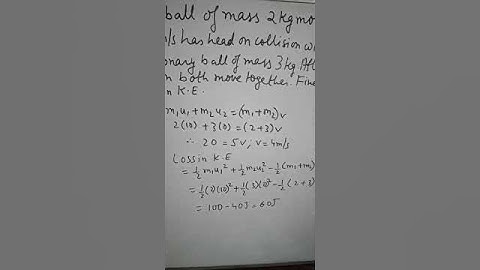 ball of mass 2 kg mo
m/s has head on collision w
onary ball of mass 3 kg. Af
n both move together. Fin
in K.E.
m₁u₁ + m₂u₂ = (m₁+m₂)v
2(10) + 3(0) = (2+3)v
∴ 20 = 5v; v = 4m/s
Loss in K.E
= ½ m₁u₁² + ½ m₂u₂² - ½ (m₁+m₂)
= ½ (2)(10)² + ½ (3)(0)² - ½ (2+3)
= 100 - 40J = 60J